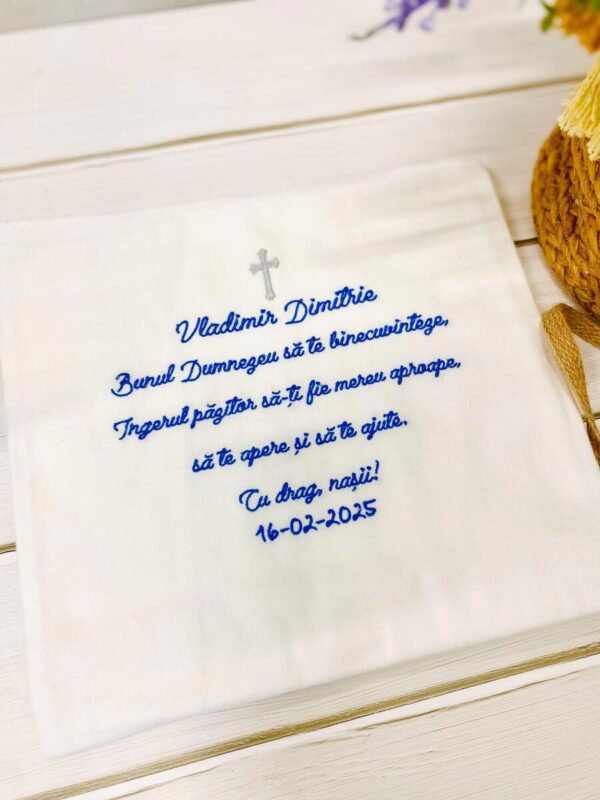 Vladimir Dimitrie
Bunul Dumnezeu să te binecuvinteze,
Îngerul păzitor să-ți fie mereu aproape,
să te apere și să te ajute.
Cu drag, nașii!
16-02-2025